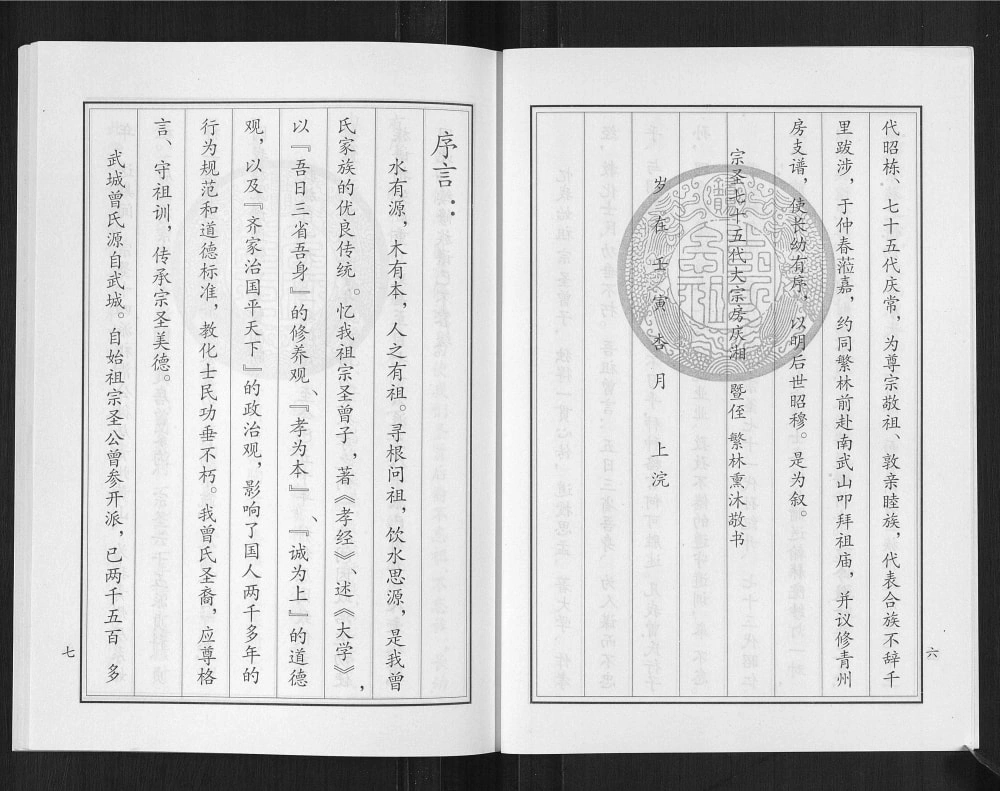 代昭栋、七十五代庆常，为尊宗敬祖、敦亲睦族，代表合族不辞千
里跋涉，于仲春莅嘉，约同繁林前赴南武山叩拜祖庙，并议修青州
房支谱，使长幼有序，以明后世昭穆。是为叙。
宗圣七十五代大宗房庆湘 暨侄 繁林熏沐敬书
岁在壬寅杏月 上浣
六
序言：
水有源，木有本，人之有祖。寻根问祖，饮水思源，是我曾
氏家族的优良传统。忆我祖宗圣曾子，著《孝经》、述《大学》，
以『吾日三省吾身』的修养观、『孝为本』、『诚为上』的道德
观，以及『齐家治国平天下』的政治观，影响了国人两千多年的
行为规范和道德标准，教化士民功垂不朽。我曾氏圣裔，应尊格
言、守祖训，传承宗圣美德。
武城曾氏源自武城。自始祖宗圣公曾参开派，已两千五百 多
七